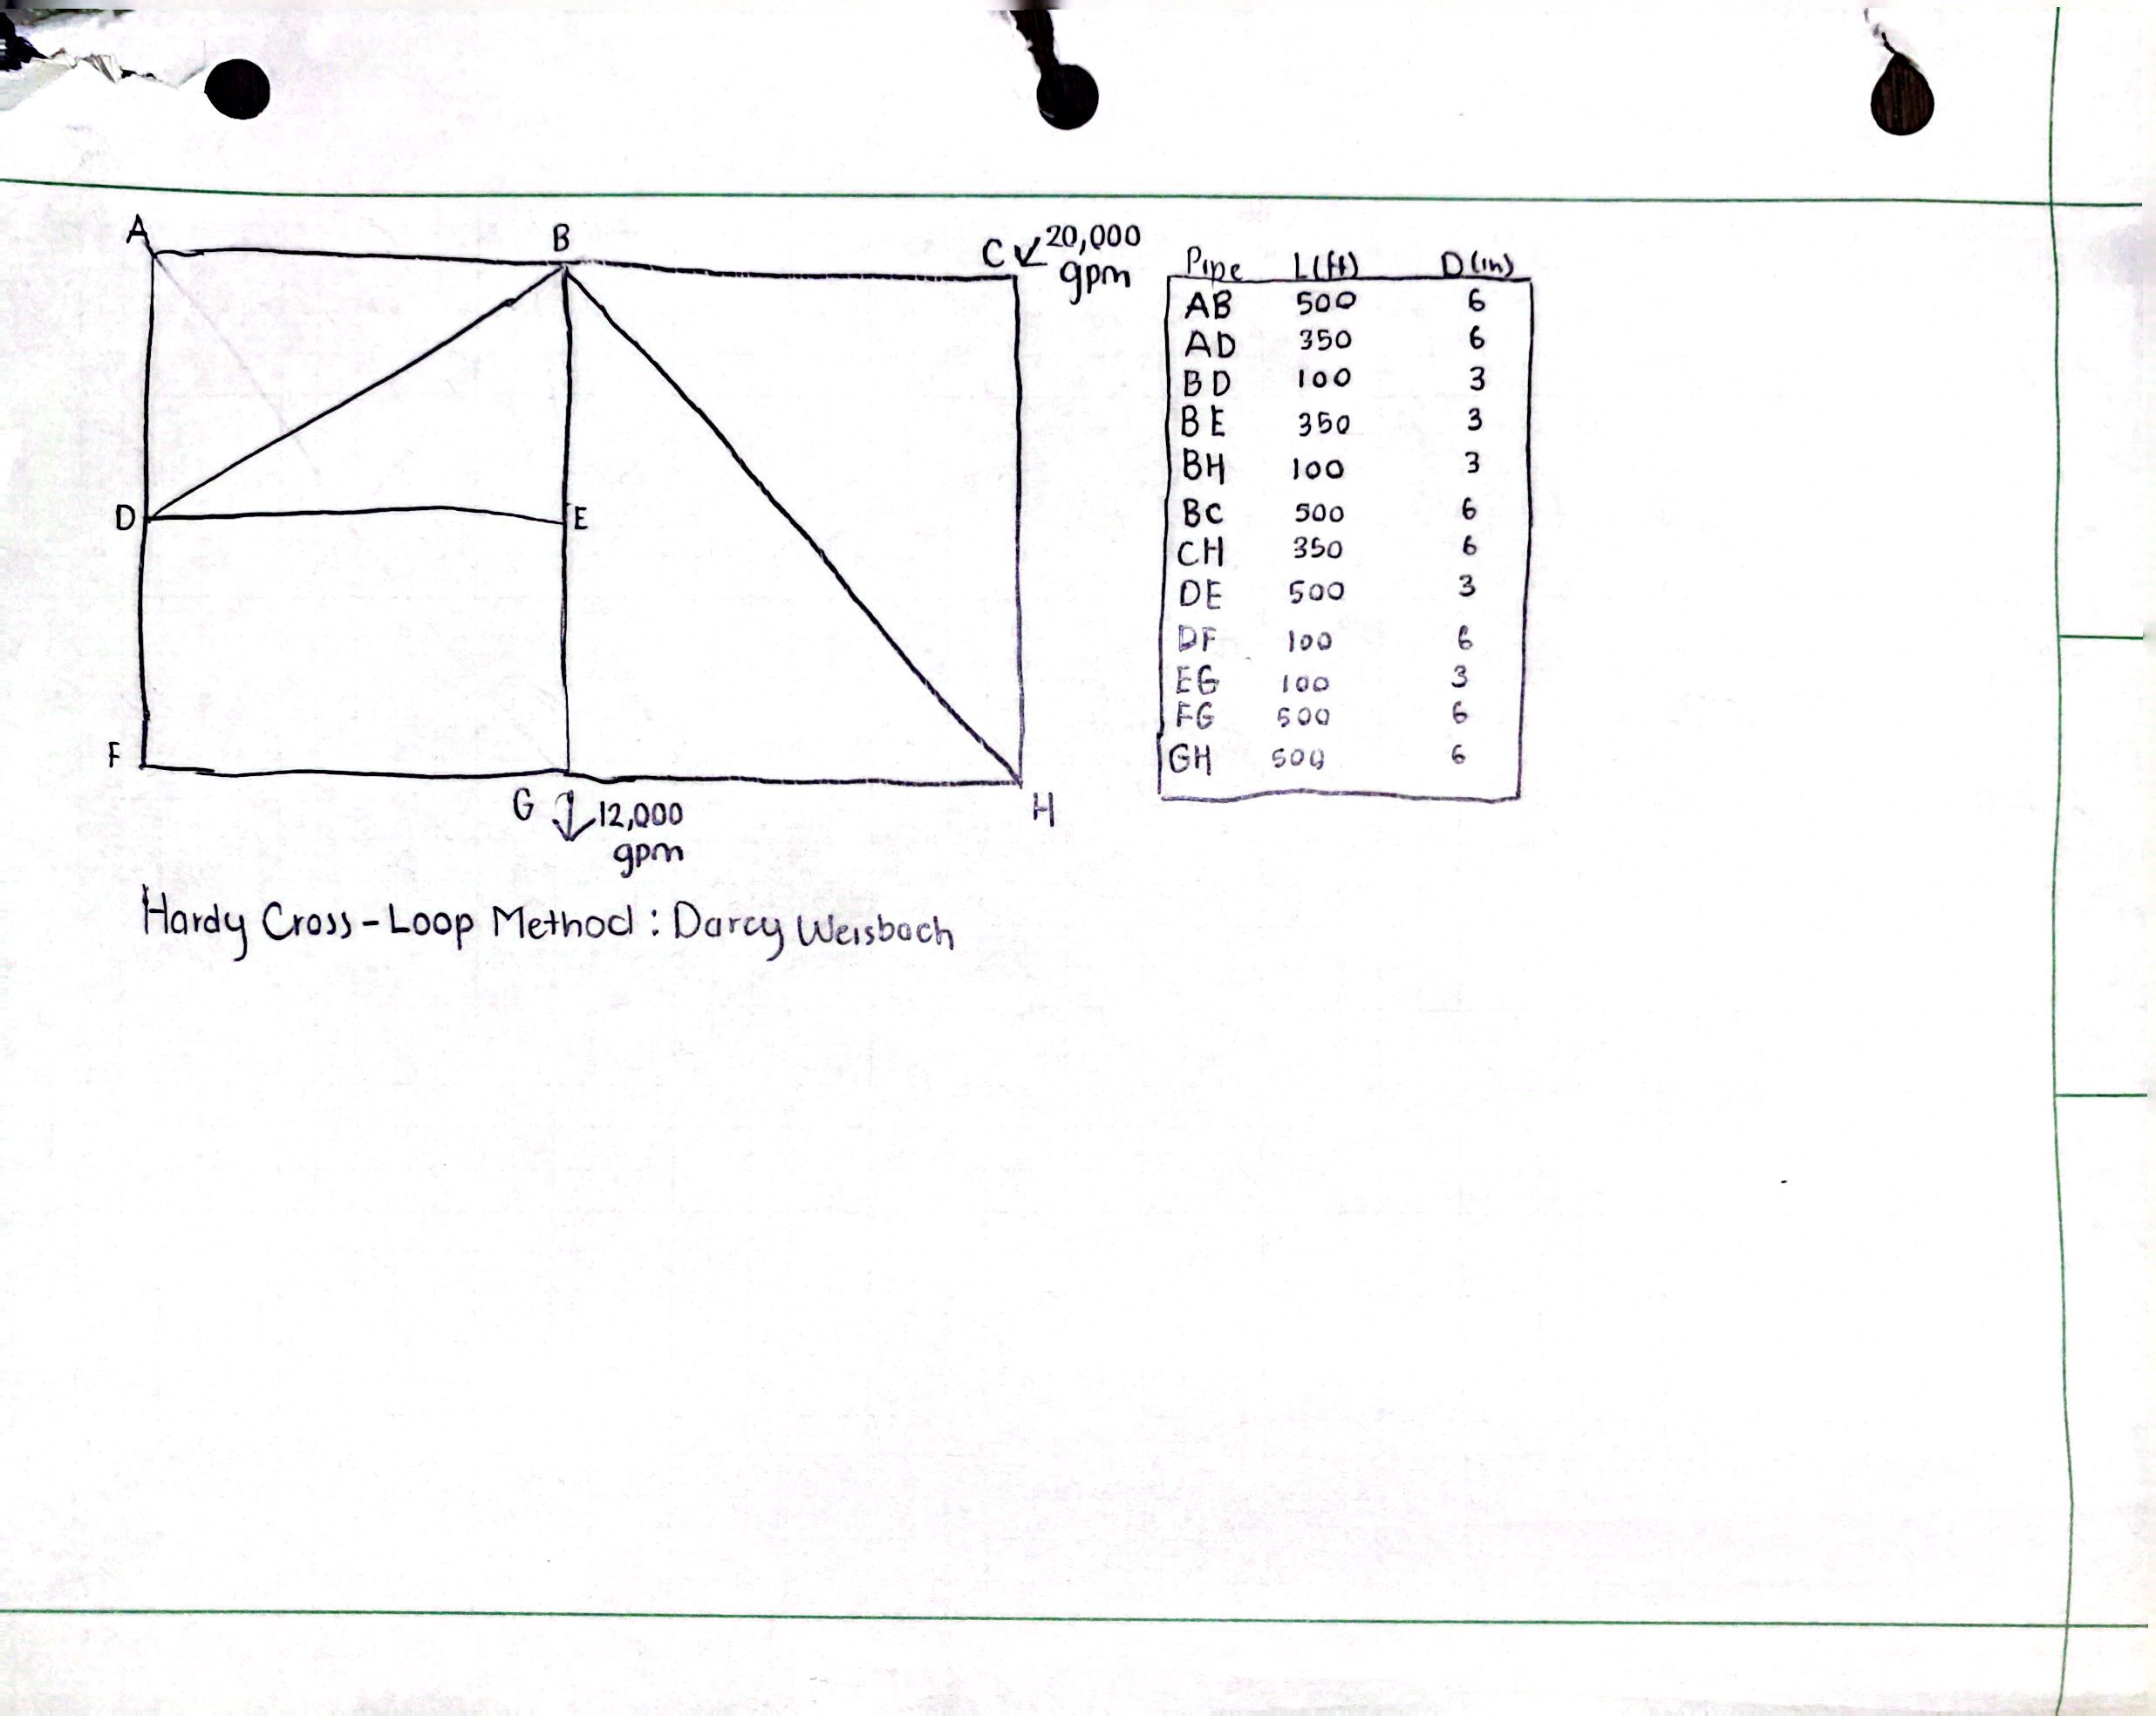 A
B
C ↙ 20,000
gpm
D
E
F
G ⇩ 12,000
gpm
H
Pipe L(ft) D(in)
AB 500 6
AD 350 6
BD 100 3
BE 350 3
BH 100 3
BC 500 6
CH 350 6
DE 500 3
DF 100 6
EG 100 3
FG 500 6
GH 500 6
Hardy Cross-Loop Method: Darcy Weisbach